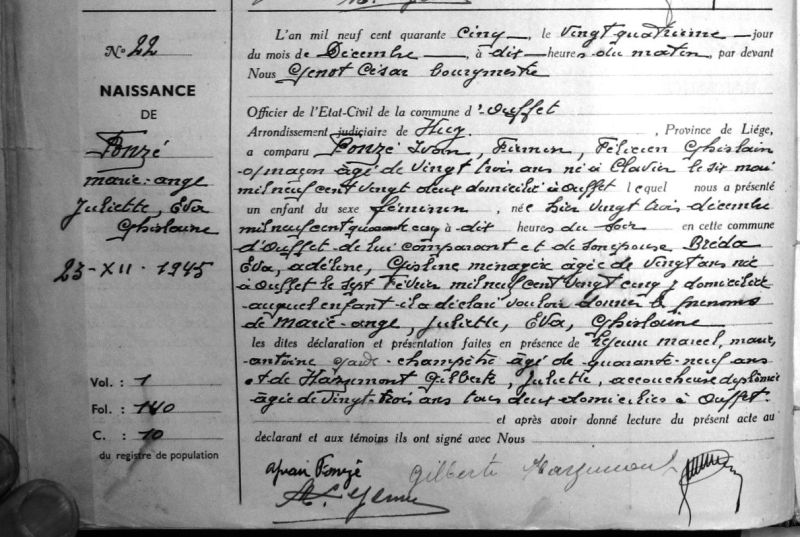 L'an mil neuf cent quarante cinq, le vingt quatrième jour
du mois de Décembre, à dix heures du matin, par devant
Nous Genot César bourgmestre
Officier de l'Etat-Civil de la commune d'Ouffet
Arrondissement judiciaire de Huy, Province de Liége,
a comparu Ponzé Ivan, Firmin, Félicien Ghislain
maçon âgé de vingt trois ans né à Clavier le six mai
mil neuf cent vingt deux domicilié à Ouffet lequel nous a présenté
un enfant du sexe féminin, née hier vingt trois décembre
mil neuf cent quarante cinq à dix heures du soir en cette commune
d'Ouffet de lui comparant et de son épouse Bréda
Eva, adéline, Gisline ménagère âgée de vingt ans née
à Ouffet le sept Février mil neuf cent vingt cinq, domiciliée
auquel enfant il a déclaré vouloir donner les prénoms
de Marie-ange, Juliette, Eva, Ghislaine
les dites déclaration et présentation faites en présence de Lejeune marcel, marie,
antoine garde-champêtre âgé de quarante-neuf ans
et de Hazumont Gilberte, Juliette, accoucheuse diplômée
âgée de vingt-trois ans tous deux domiciliés à Ouffet.
et après avoir donné lecture du présent acte au
déclarant et aux témoins ils ont signé avec Nous
N° 22
NAISSANCE
DE
Ponzé
marie-ange
Juliette, Eva
Ghislaine
23-XII-1945
Vol. : 1
Fol. : 140
C. : 10
du registre de population
Gilberte Hazumont